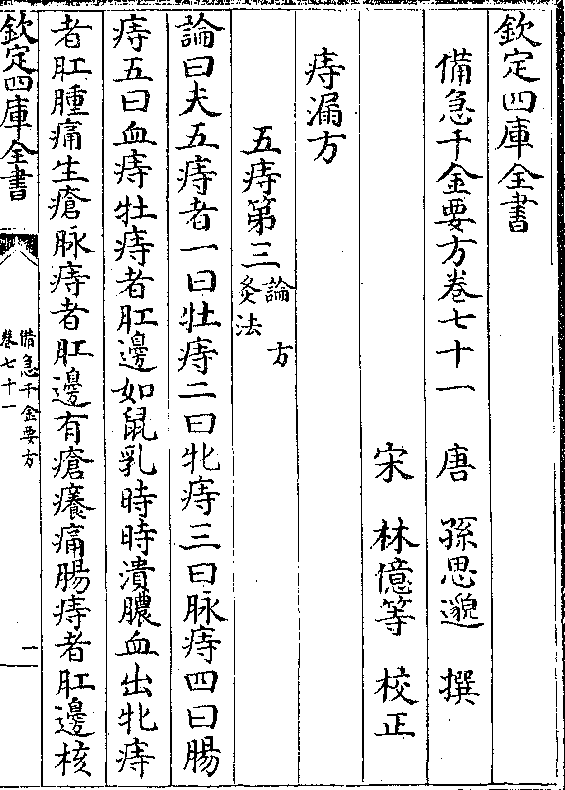 欽定四庫全書
備急千金要方卷七十一　唐　孫思邈　撰
宋　林億等　校正
痔漏方
五痔第三論　方
灸法
論曰夫五痔者一曰牡痔二曰牝痔三曰脉痔四曰腸
痔五曰血痔牡痔者肛邊如鼠乳時時潰膿血出牝痔
者肛腫痛生瘡脉痔者肛邊有瘡癢痛腸痔者肛邊核
欽定四庫全書
備急千金要方
卷七十一
一